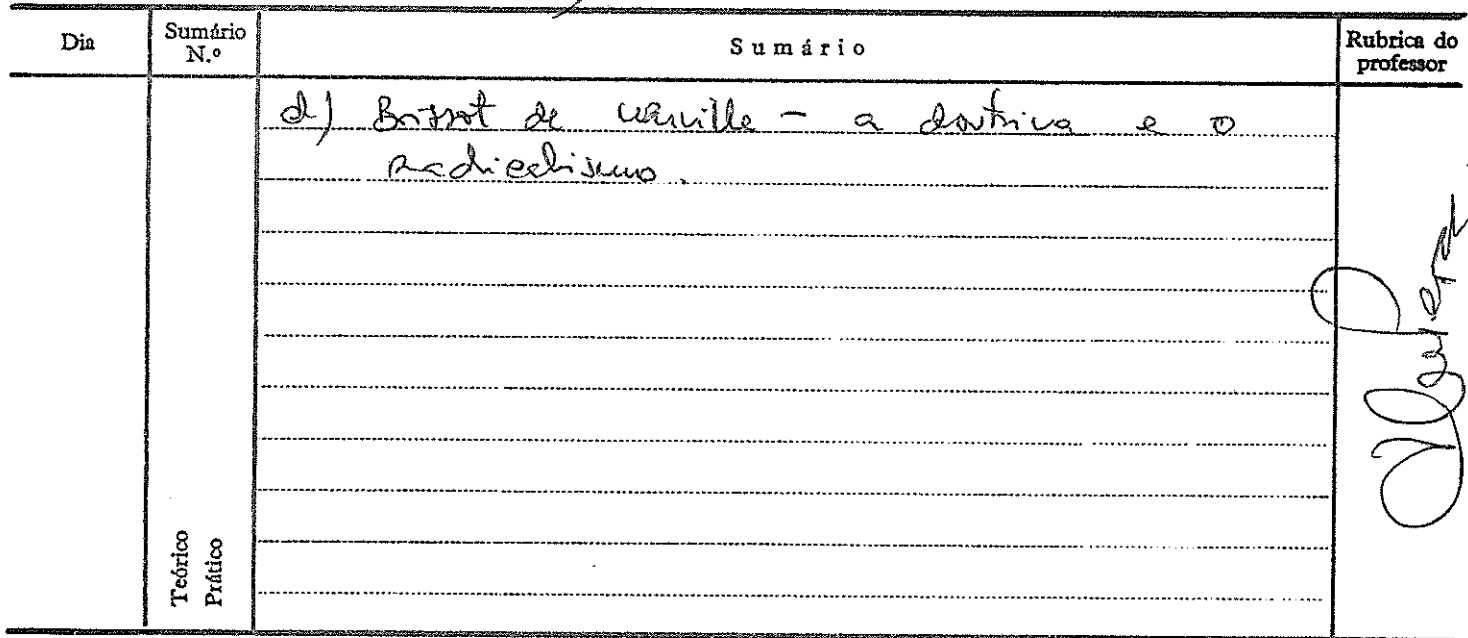 Dia
Sumário N.º
Sumário
Rubrica do professor
d) Brissot de Warville - a doutrina e o
radicalismo.
Teórico
Prático